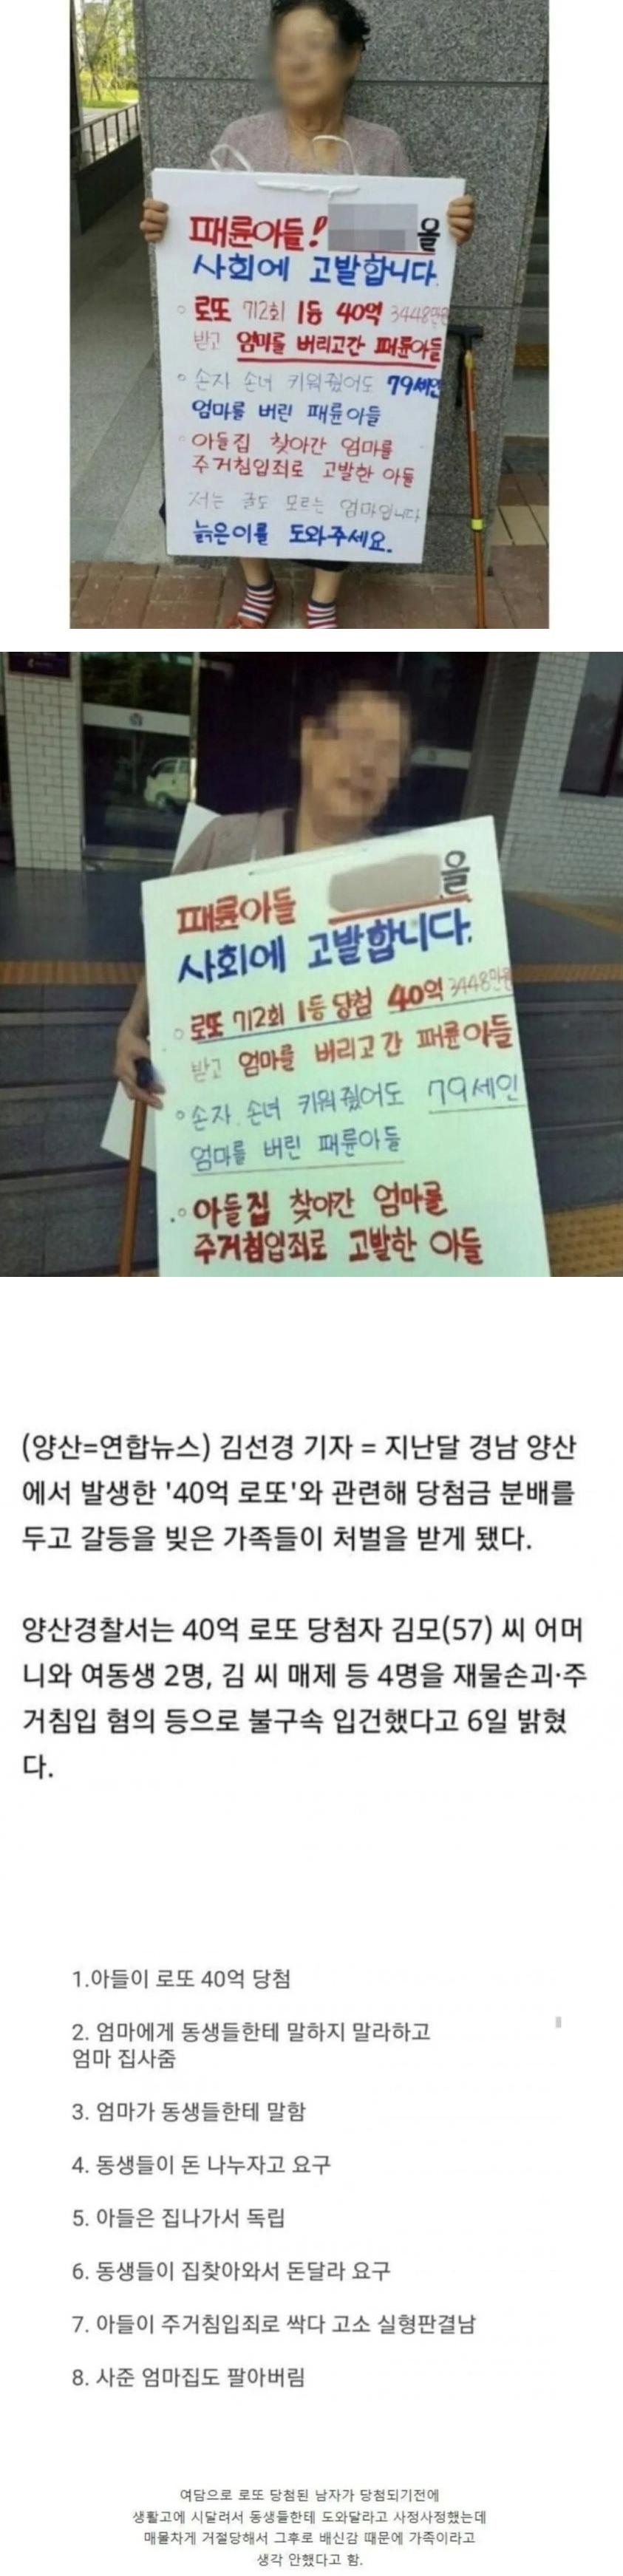 패륜아들! 을
사회에 고발합니다.
로또 712회 1등 40억 3448만원
받고 엄마를 버리고간 패륜아들
손자 손녀 키워줬어도 79세인
엄마를 버린 패륜아들
아들집 찾아간 엄마를
주거침입죄로 고발한 아들
저는 글도 모르는 엄마입니다
늙은이를 도와주세요.
패륜아들 을
사회에 고발합니다.
로또 712회 1등 당첨 40억 3448만원
받고 엄마를 버리고 간 패륜아들
손자. 손녀 키워줬어도 79세인
엄마를 버린 패륜아들
아들집 찾아간 엄마를
주거침입죄로 고발한 아들
(양산=연합뉴스) 김선경 기자 = 지난달 경남 양산
에서 발생한 '40억 로또'와 관련해 당첨금 분배를
두고 갈등을 빚은 가족들이 처벌을 받게 됐다.
양산경찰서는 40억 로또 당첨자 김모(57) 씨 어머
니와 여동생 2명, 김 씨 매제 등 4명을 재물손괴·주
거침입 혐의 등으로 불구속 입건했다고 6일 밝혔
다.
1.아들이 로또 40억 당첨
2. 엄마에게 동생들한테 말하지 말라하고
엄마 집사줌
3. 엄마가 동생들한테 말함
4. 동생들이 돈 나누자고 요구
5. 아들은 집나가서 독립
6. 동생들이 집찾아와서 돈달라 요구
7. 아들이 주거침입죄로 싹다 고소 실형판결남
8. 사준 엄마집도 팔아버림
여담으로 로또 당첨된 남자가 당첨되기전에
생활고에 시달려서 동생들한테 도와달라고 사정사정했는데
매몰차게 거절당해서 그후로 배신감 때문에 가족이라고
생각 안했다고 함.